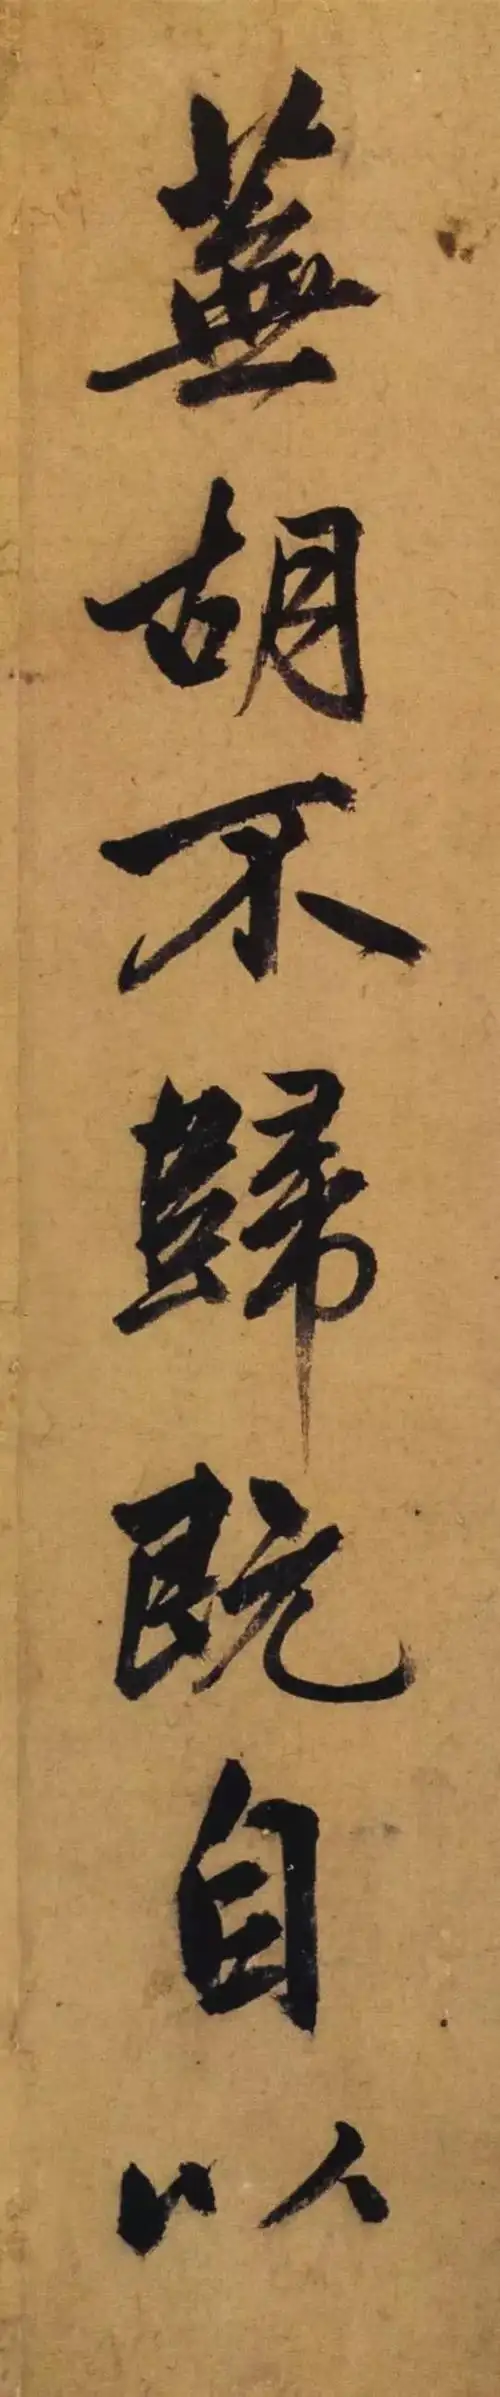 蕪胡不歸既自以